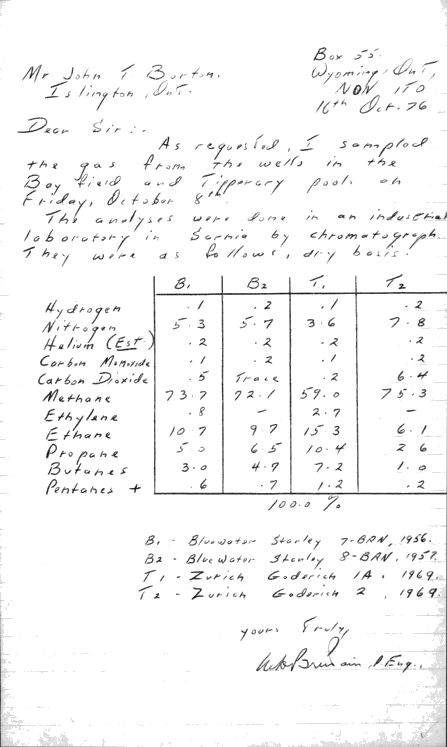 Box 55.
Mr John T. Burton.
Wyoming, Ont,
Islington, Ont.
N0N 1T0
16th Oct. 76
Dear Sir:-
As requested, I sampled
the gas from the wells in the
Bayfield and Tipperary pools on
Friday, October 8th.
The analyses were done in an industrial
laboratory in Sarnia by chromatograph.
They were as follows, dry basis:
B1 B2 T1 T2
Hydrogen .1 .2 .1 .2
Nitrogen 5.3 5.7 3.6 7.8
Helium (Est.) .2 .2 .2 .2
Carbon Monoxide .1 .2 .1 .2
Carbon Dioxide .5 Trace .2 6.4
Methane 73.7 72.1 59.0 75.3
Ethylene .8 - 2.7 -
Ethane 10.7 9.7 15.3 6.1
Propane 5.0 6.5 10.4 2.6
Butanes 3.0 4.7 7.2 1.0
Pentanes + .6 .7 1.2 .2
100.0 %
B1 - Bluewater Stanley 7-BRN, 1956.
B2 - Bluewater Stanley 8-BRN, 1957.
T1 - Zurich Goderich 1A, 1969.
T2 - Zurich Goderich 2, 1969.
yours Truly,
P.Eng.,